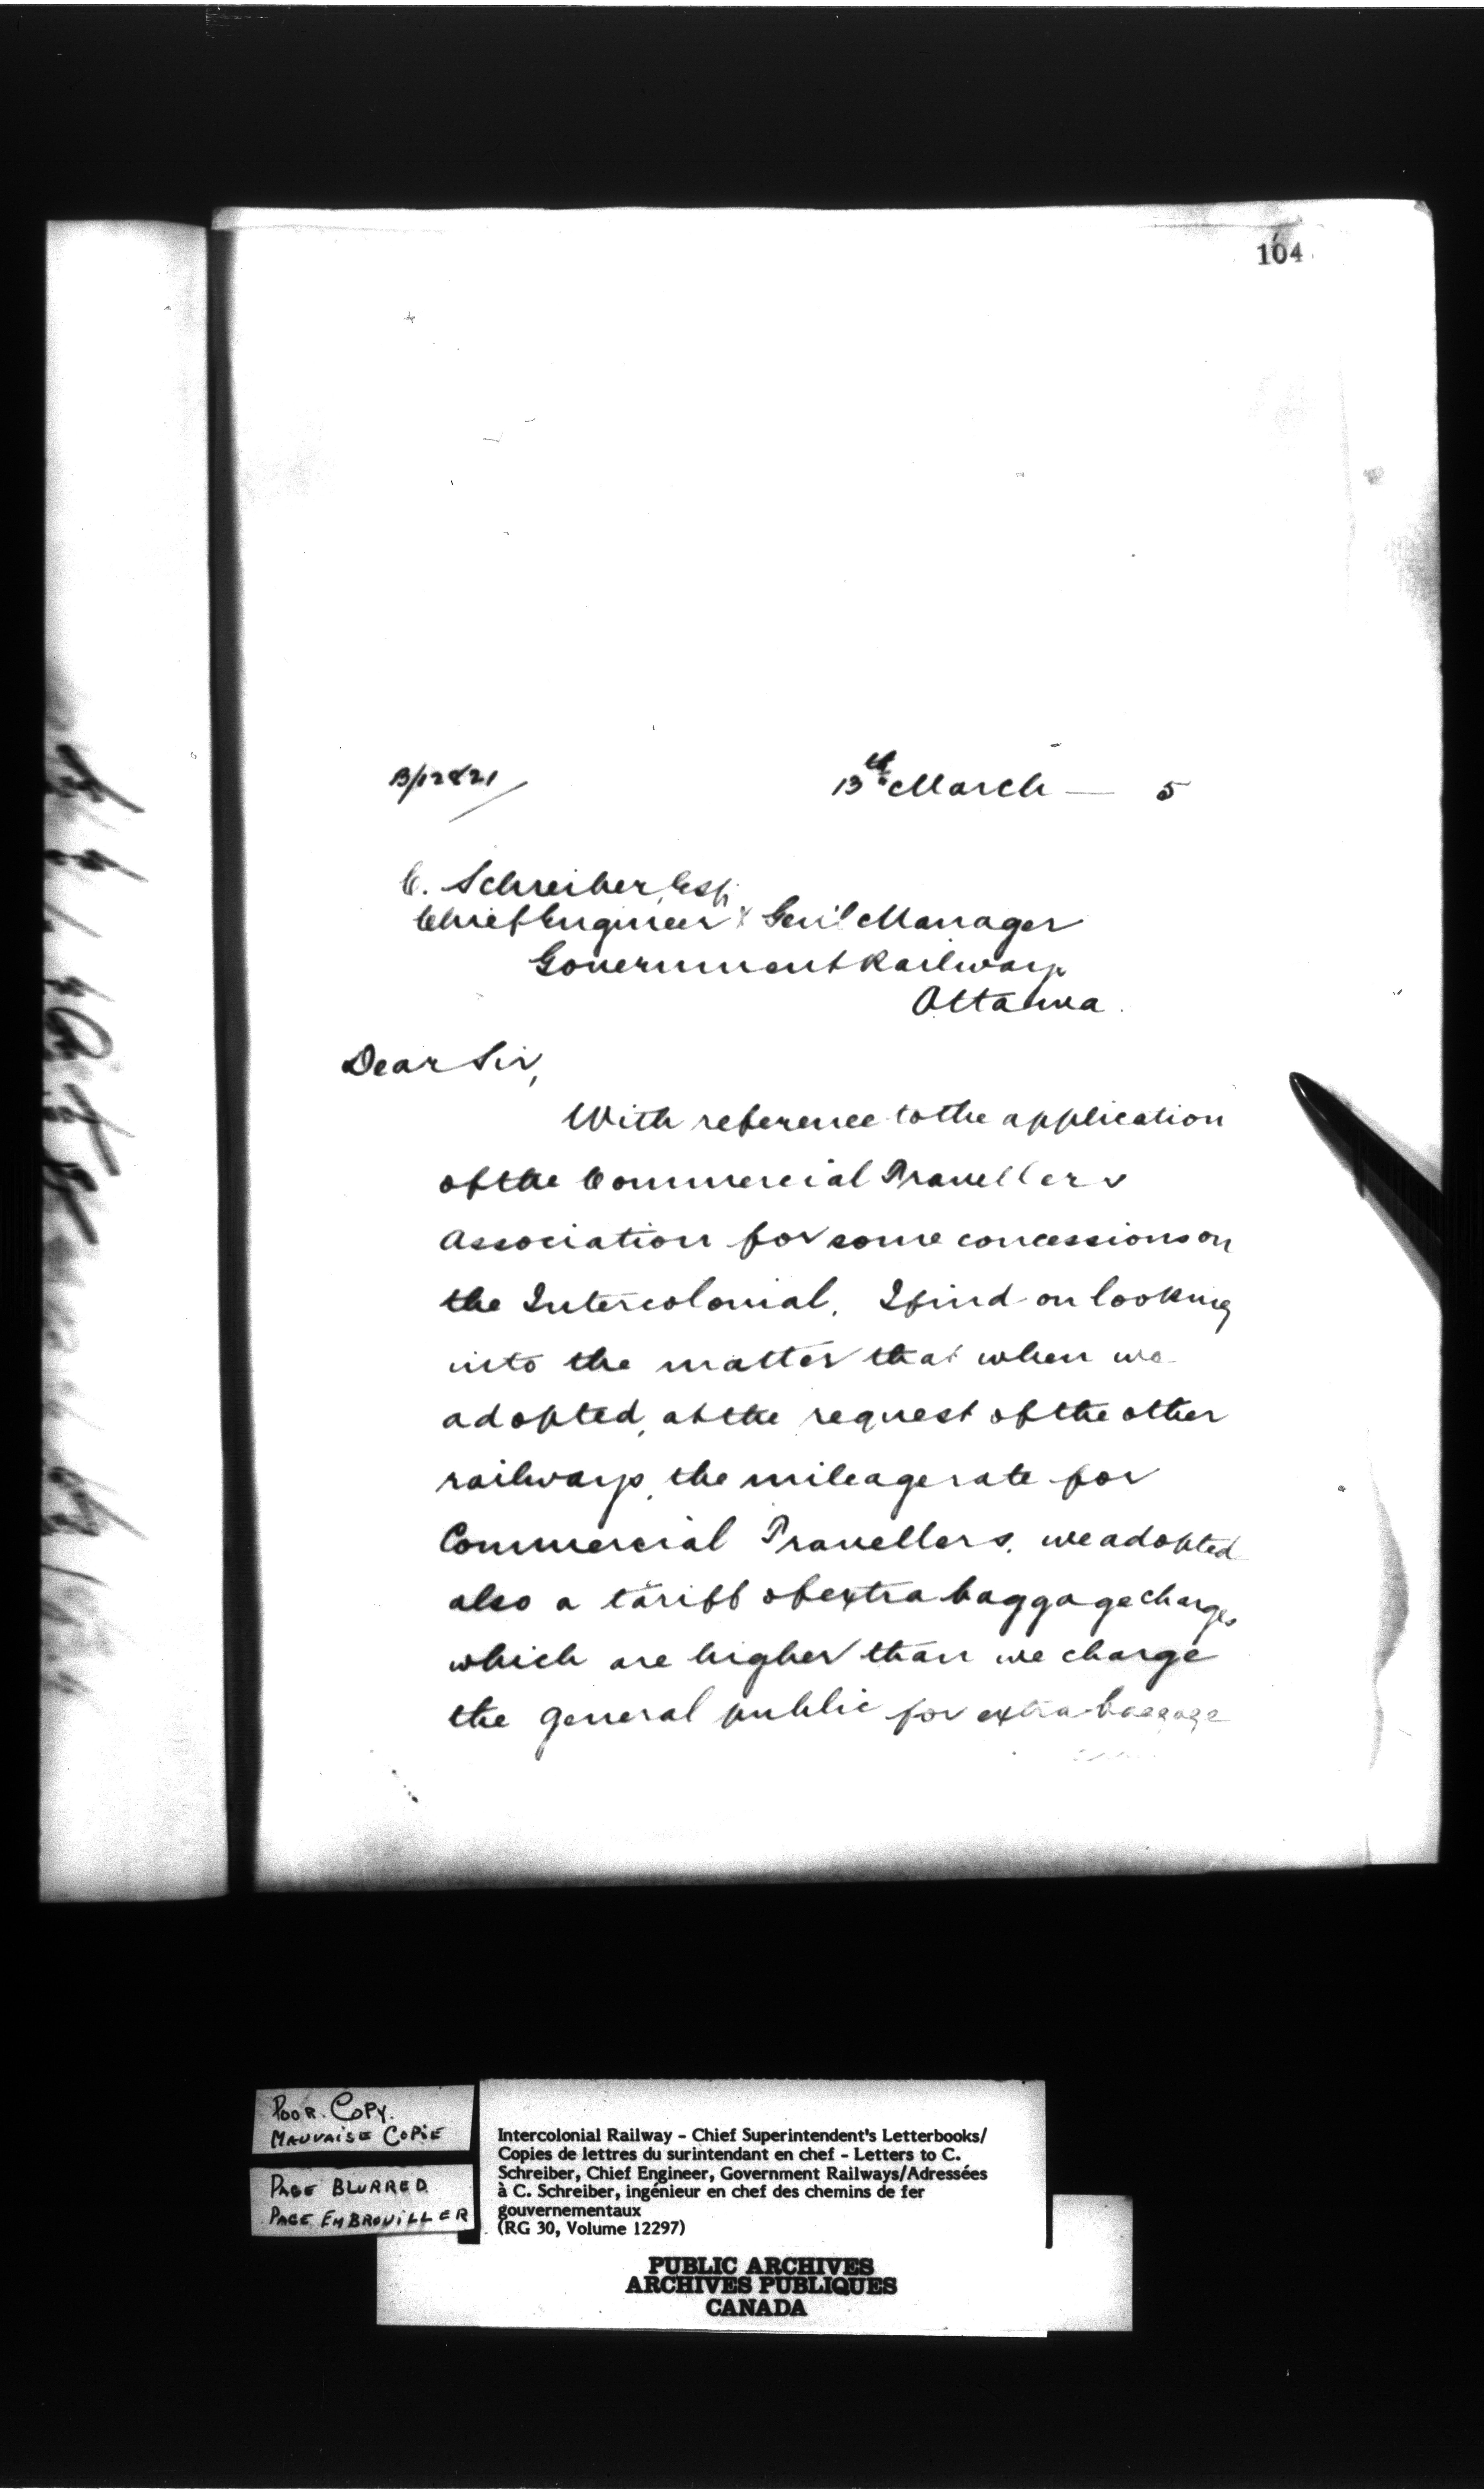 104
B/12821
13th March — 5
C. Schreiber, Esq.
Chief Engineer & Gen'l Manager
Government Railways
Ottawa.
Dear Sir,
With reference to the application
of the Commercial Travellers
Association for some concessions on
the Intercolonial. I find on looking
into the matter that when we
adopted, at the request of the other
railways, the mileage rate for
Commercial Travellers, we adopted
also a tariff of extra baggage charges
which are higher than we charge
the general public for extra baggage
POOR. COPY.
MAUVAISE COPIE
PAGE BLURRED
PAGE EMBROUILLER
Intercolonial Railway - Chief Superintendent's Letterbooks/
Copies de lettres du surintendant en chef - Letters to C.
Schreiber, Chief Engineer, Government Railways/Adressées
à C. Schreiber, ingénieur en chef des chemins de fer
gouvernementaux
(RG 30, Volume 12297)
PUBLIC ARCHIVES
ARCHIVES PUBLIQUES
CANADA